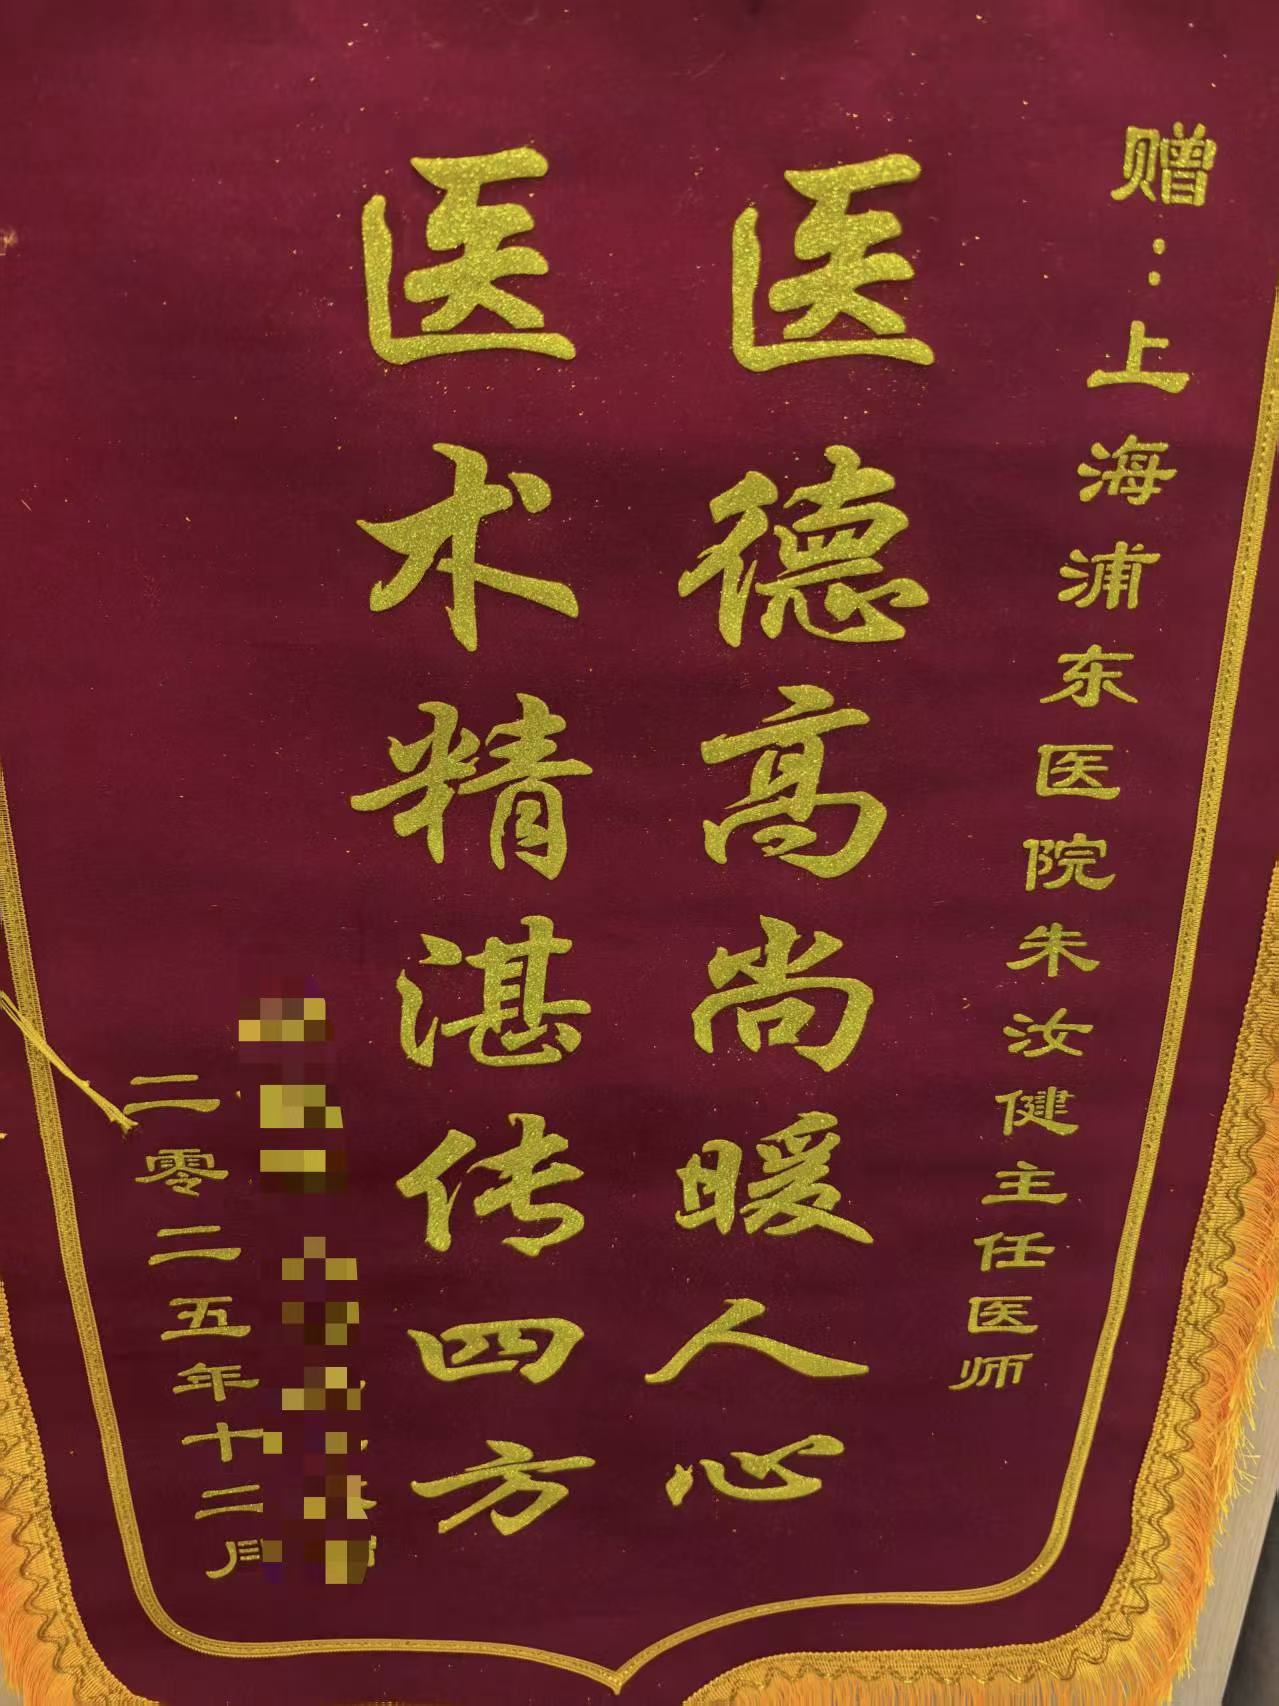 赠：上海浦东医院朱汝健主任医师
医德高尚暖人心
医术精湛传四方
二零二五年十二月